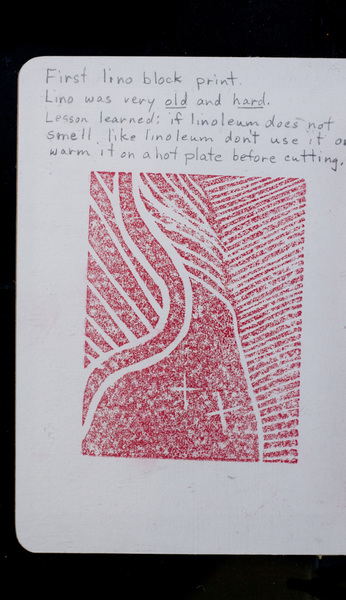 First lino block print.
Lino was very old and hard.
Lesson learned: if linoleum does not
smell like linoleum don't use it or
warm it on a hot plate before cutting.